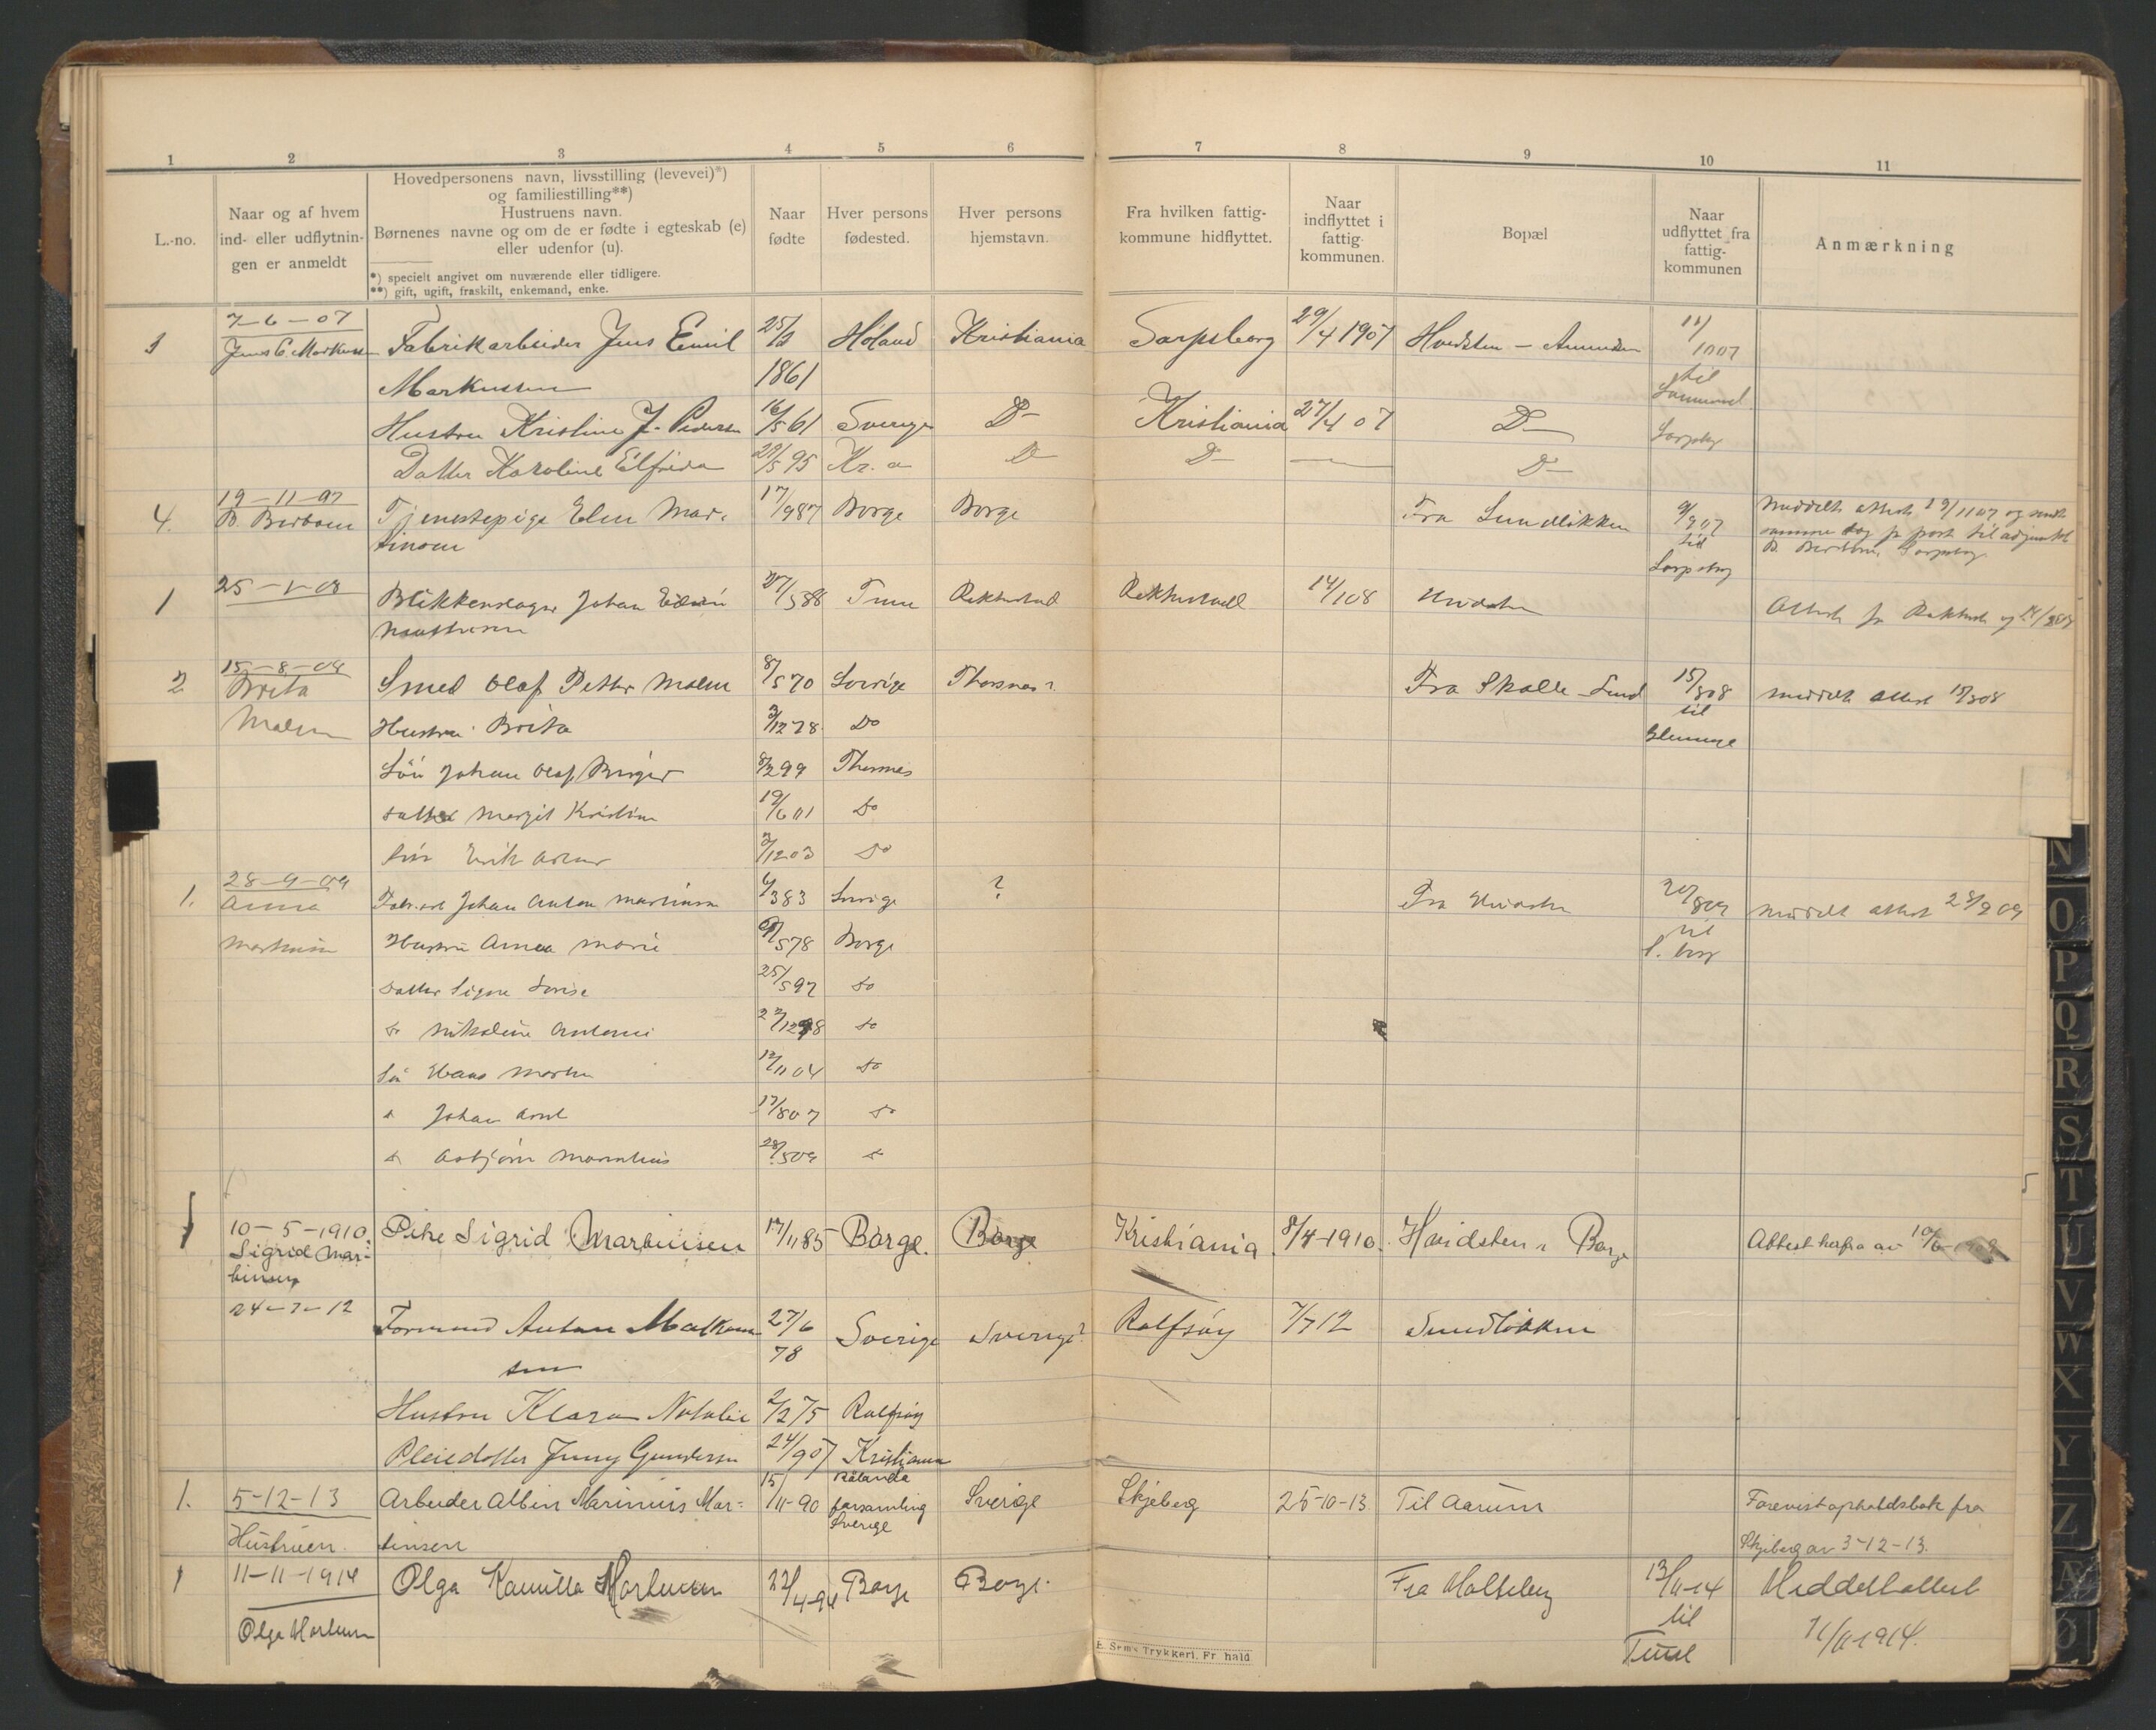 1 2 3 4 5 6 7 8 9 10 11
L.-no.
Naar og af hvem
ind- eller udflytnin-
gen er anmeldt
Hovedpersonens navn, livsstilling (levevei)*)
og familiestilling**)
Hustruens navn.
Børnenes navne og om de er fødte i egteskab (e)
eller udenfor (u).
*) specielt angivet om nuværende eller tidligere.
**) gift, ugift, fraskilt, enkemand, enke.
Naar
fødte
Hver persons
fødested.
Hver persons
hjemstavn.
Fra hvilken fattig-
kommune hidflyttet.
Naar
indflyttet i
fattig-
kommunen.
Bopæl
Naar
udflyttet fra
fattig-
kommunen
Anmærkning
7-6-07
3 Fabrikarbeider Jens Emil 25/3 Høland Kristiania Sarpsborg 29/4 1907 Hvidsten
Markussen 1861 til
Hustru Kristine J. Pedersen 16/5 61 Sverige D- Kristiania 27/4 07 D-
Datter Karoline Elfrida 29/5 95 Kr.a D- D- D-
19-11-07
4. Tjenestepige Elen Mar- 17/9 87 Borge Borge Fra Sundløkken 9/9 07
tinsen til
Sarpsborg
25-1-08
1 Blikkenslager Johan 27/5 88 Tune Rakkestad Rakkestad 14/1 08 Hvidsten
15-8-08
2 Brita Smed Olaf Petter Malm 8/5 70 Sverige Thorsnes? Fra Skolle-Lund 15/8 08 meddelt attest 15/8 08
Malm Hustru Brita 3/12 78 Do til Glemmge
Sön Johan Olaf Birger 8/2 99 Thorsnes
Datter Margit Kristine 19/6 01 Do
Sön Erik 3/12 03 Do
28-9-09
1. Anna Johan Anton Martinsen 6/3 83 Sverige ? Fra Hvidsten 20/8 09 meddelt attest 28/9 09
Martinsen Hustru Anna Marie 5 78 Borge til S.borg
Datter Signe Lovise 25/5 97 Do
Do Nikoline Antonie 12 98 Do
Sön Hans Martin 12/11 04 Do
Johan 17/8 07 Do
Asbjörn 28/5 09
10-5-1910. Pike Sigrid Martinsen 17/11 85 Borge. Borge Kristiania 8/4-1910. Hvidsten, Borge Attest herfra av 10/6
Sigrid Mar-
tinsen
24-7-12
Formand Anton 27/6 Sverige Sverige? Rolfsöy 7/7 12 Sundløkken
sen 78
Hustru Klara Natalie 2/2 75 Rolfsöy
Pleiedatter Jenny Gundersen 24/9 07 Kristiania
1. 5-12-13 Arbeider Albin Marinius Mar- 15/11-90 forsamling Sverige Sverige Skjeberg 25-10-13. Til Aarum Forevist opholdsbok fra
Hustruen. tinsen Skjeberg av 3-12-13.
1 11-11-1914 Olga Kamilla Martinsen 4-94 Borge Borge. Fra 13/11-14 Meddelt attest
Olga Martinsen til 11/11 1914.
Tune
E. Sem's Trykkeri, Fr.hald
N
O
P
Q
R
S
T
U
V
W
X
Y
Z
Æ
Ø